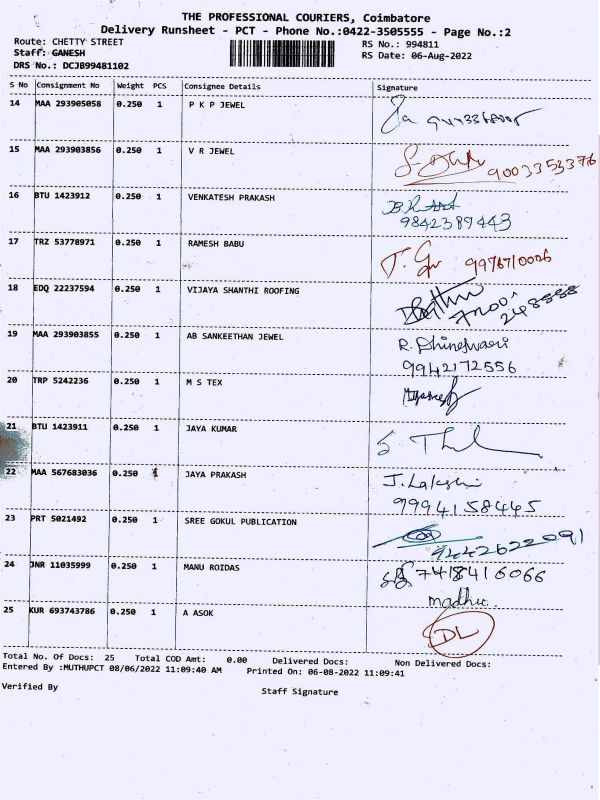 THE PROFESSIONAL COURIERS, Coimbatore
Delivery Runsheet - PCT - Phone No.:0422-3505555 - Page No.:2
Route: CHETTY STREET RS No.: 994811
Staff: GANESH RS Date: 06-Aug-2022
DRS No.: DCJB99481102
S No Consignment No Weight PCS Consignee Details Signature
14 MAA 293905058 0.250 1 P K P JEWEL
15 MAA 293903856 0.250 1 V R JEWEL
9003353376
16 BTU 1423912 0.250 1 VENKATESH PRAKASH
9842389443
17 TRZ 53778971 0.250 1 RAMESH BABU
9976710006
18 EDQ 22237594 0.250 1 VIJAYA SHANTHI ROOFING
19 MAA 293903855 0.250 1 AB SANKEETHAN JEWEL R. Dhineshwari
9942172556
20 TRP 5242236 0.250 1 M S TEX
21 BTU 1423911 0.250 1 JAYA KUMAR
22 MAA 567683036 0.250 1 JAYA PRAKASH J. Lakshmi
9994158445
23 PRT 5021492 0.250 1 SREE GOKUL PUBLICATION
9442622091
24 JNR 11035999 0.250 1 MANU ROIDAS 7418416066
madhu.
25 KUR 693743786 0.250 1 A ASOK
DL
Total No. Of Docs: 25 Total COD Amt: 0.00 Delivered Docs: Non Delivered Docs:
Entered By :MUTHUPCT 08/06/2022 11:09:40 AM Printed On: 06-08-2022 11:09:41
Verified By Staff Signature